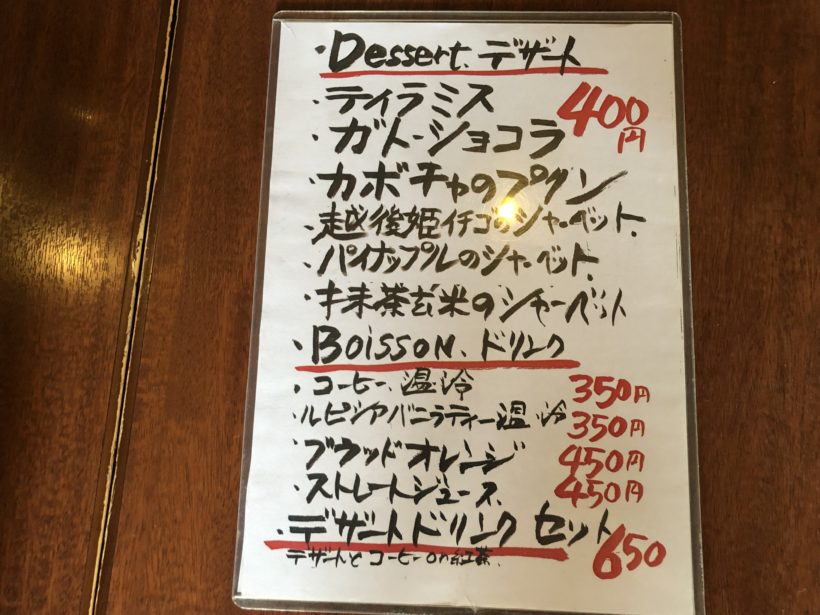 ・Dessert、デザート
・ティラミス 400円
・ガトーショコラ
・カボチャのプリン
・越後姫イチゴのシャーベット
・パイナップルのシャーベット
・抹茶玄米のシャーベット
・Boisson、ドリンク
・コーヒー 温・冷 350円
・ルピシアバニラティー温・冷 350円
・ブラッドオレンジ 450円
・ストレートジュース 450円
・デザートドリンク セット 650
デザートとコーヒーor紅茶